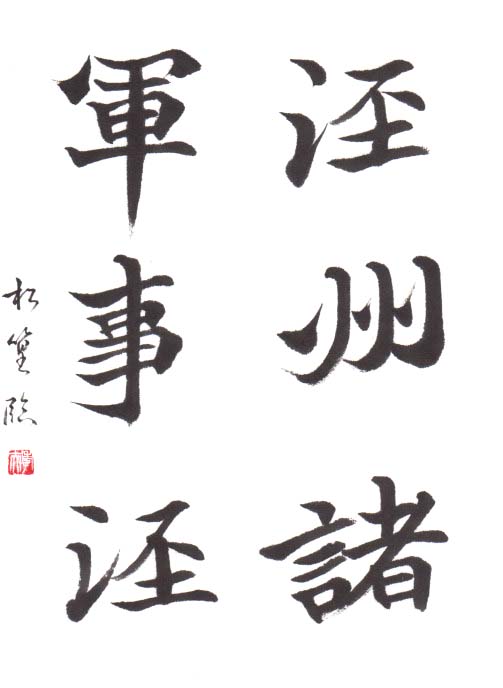 涇州諸
軍事涇
松篁臨